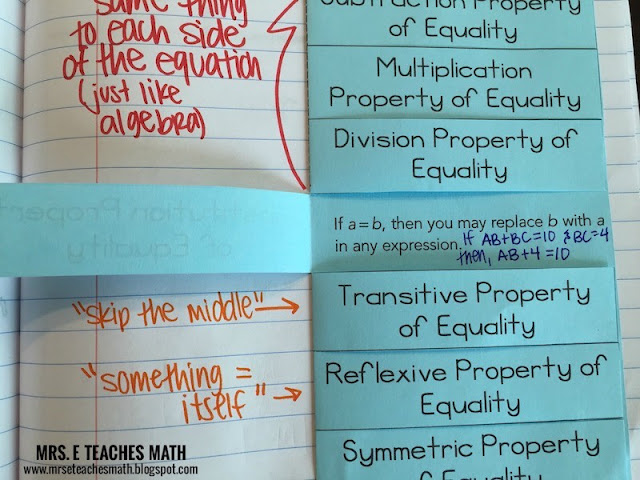 same thing
to each side
of the equation
(just like
algebra)
Subtraction Property
of Equality
Multiplication
Property of Equality
Division Property of
Equality
If a = b, then you may replace b with a
in any expression. If AB+BC=10 & BC=4
then, AB+4=10
"skip the middle" →
Transitive Property
of Equality
"something =
itself" →
Reflexive Property of
Equality
Symmetric Property
of Equality
MRS. E TEACHES MATH
www.mrseteachesmath.blogspot.com